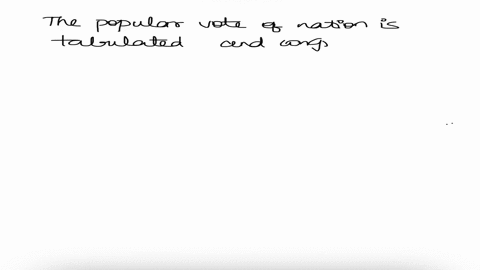 The popular vote of nation is
tabulated and cong